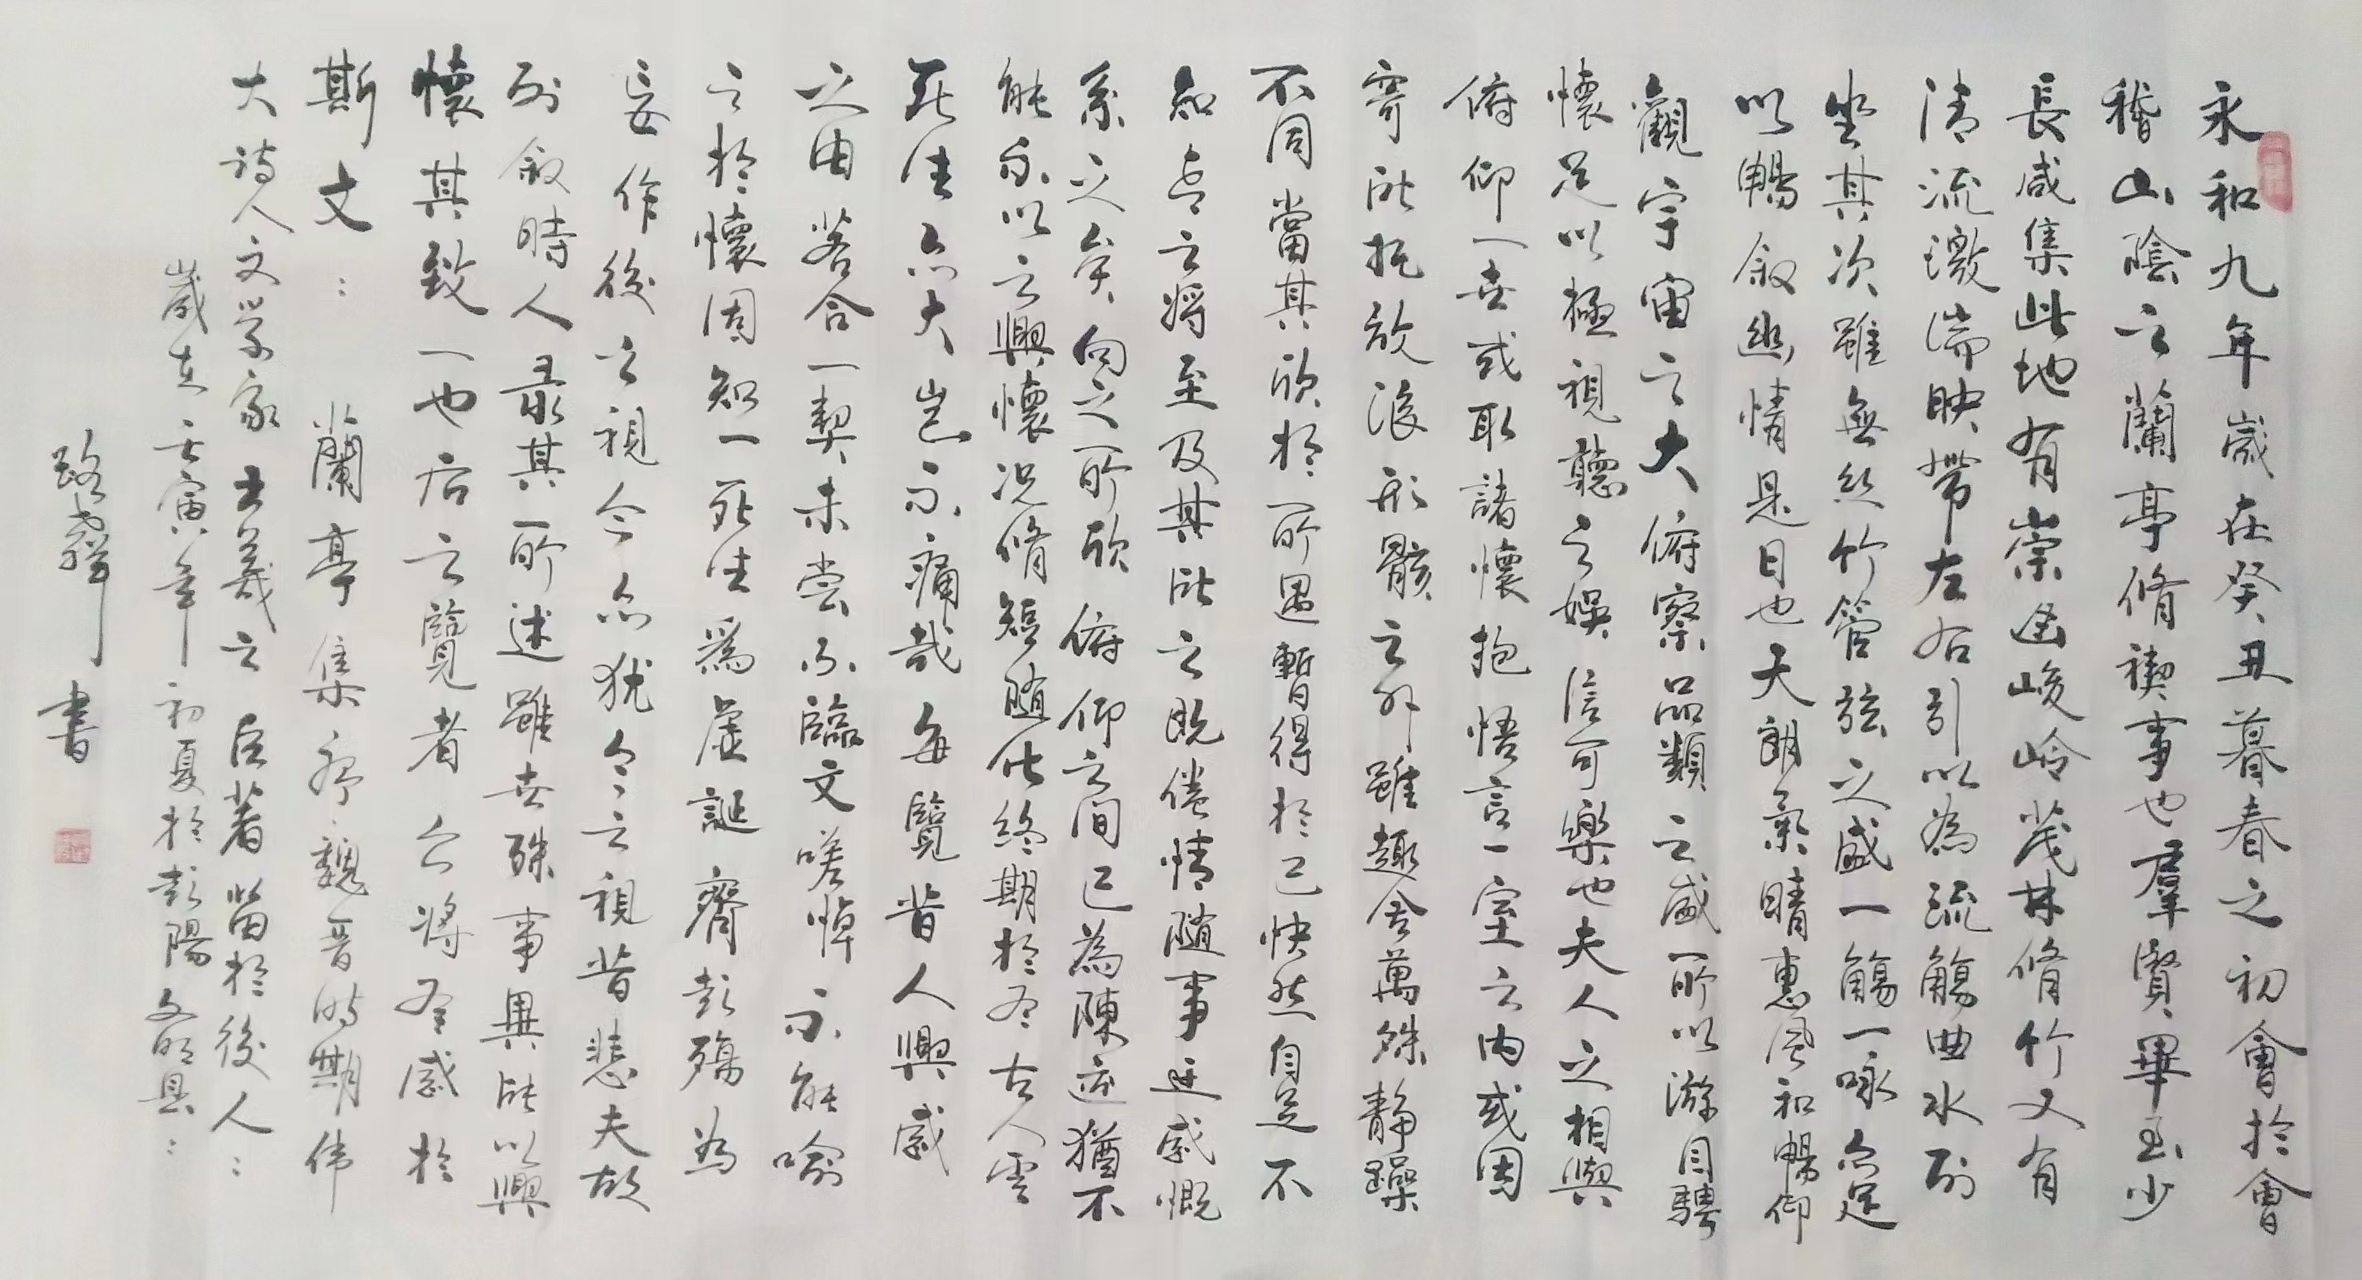 永和九年歲在癸丑暮春之初會於會
稽山陰之蘭亭脩禊事也羣賢畢至少
長咸集此地有崇函峻岭茂林脩竹又有
清流激湍映帶左右引以為流觴曲水列
坐其次雖無絲竹管弦之盛一觴一咏亦足
以暢叙幽情是日也天朗氣晴惠風和暢仰
觀宇宙之大俯察品類之盛所以游目騁
懷足以極視聽之娛信可樂也夫人之相與
俯仰一世或取諸懷抱悟言一室之内或因
寄所托放浪形骸之外雖趣舍萬殊静躁
不同當其欣於所遇暫得於己快然自足不
知老之将至及其所之既倦情隨事迁感慨
系之矣向之所欣俯仰之間已為陳迹猶不
能不以之興懷况脩短随化终期於盡古人雲
死生亦大豈不痛哉每覽昔人興感
之由若合一契未尝不臨文嗟悼不能喻
之於懷固知一死生爲虚誕齊彭殤為
妄作後之视今亦犹今之視昔悲夫故
列叙時人录其所述雖世殊事異所以興
懷其致一也后之覽者亦將有感於
斯文: 蘭亭集序魏晋时期伟
大诗人文学家王羲之巨著留於後人:
歲在壬寅年初夏於彭陽文昭县:
路 書